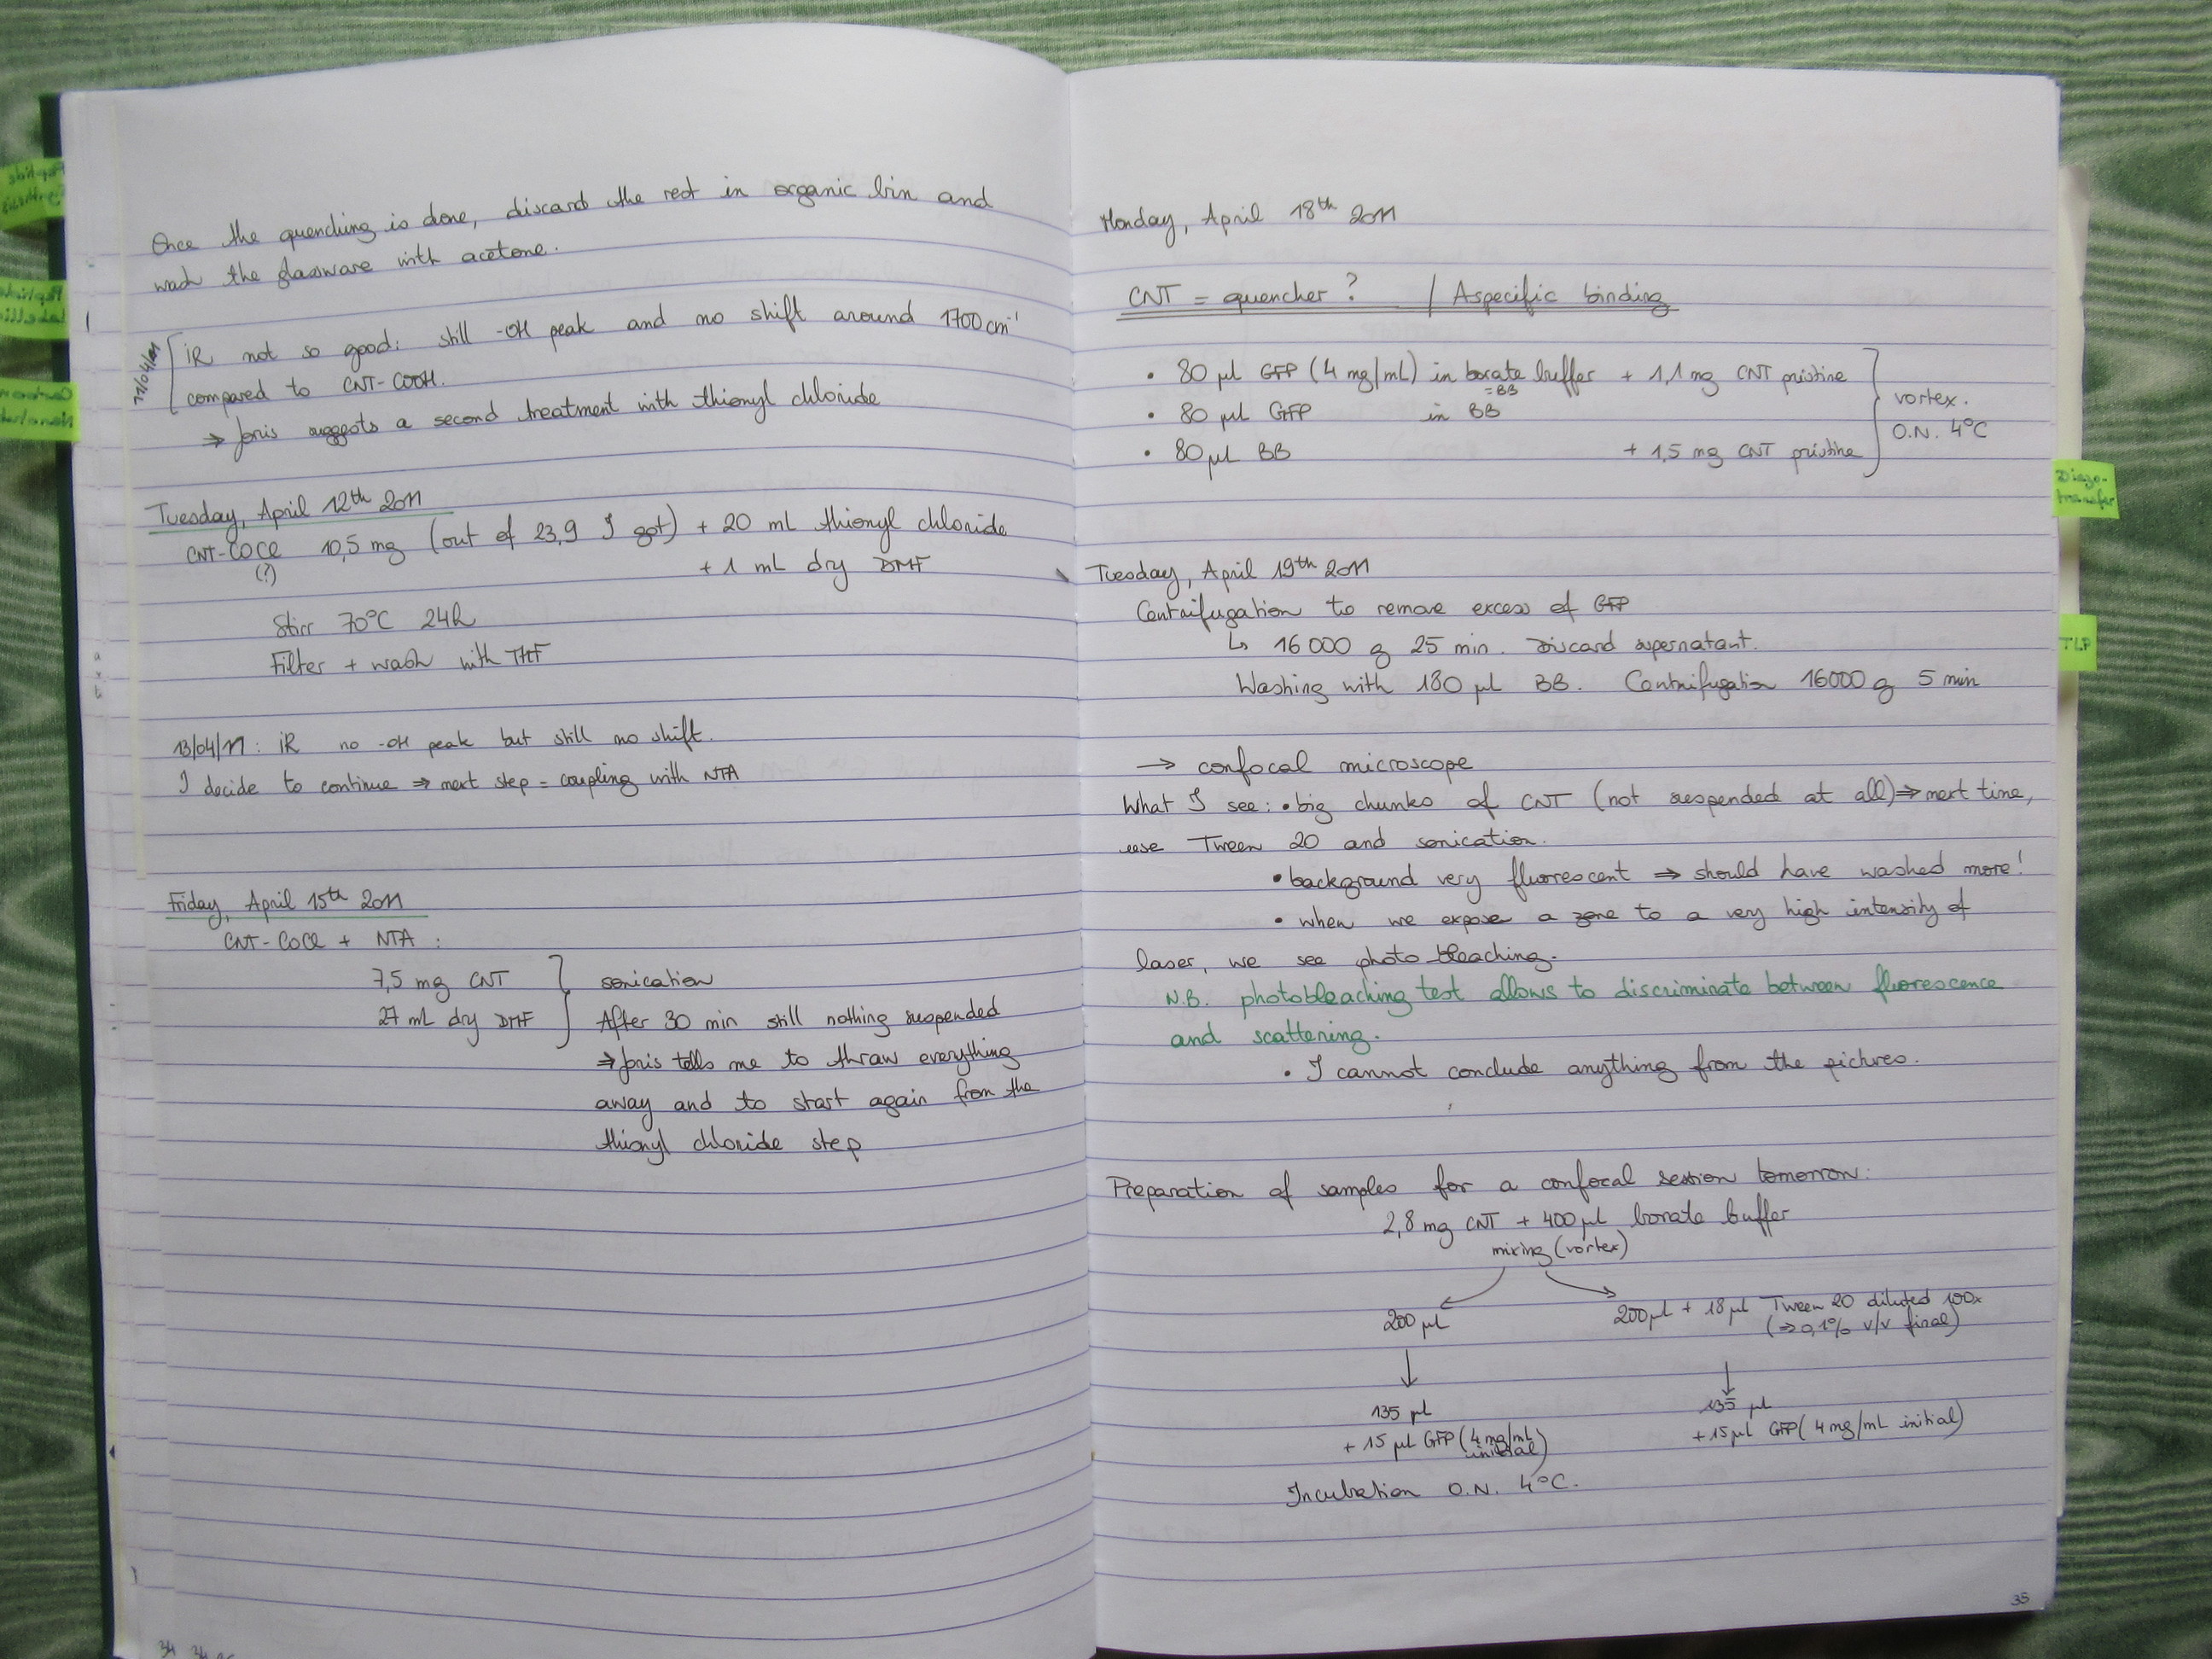 Once the quenching is done, discard the rest in organic bin and
wash the glassware with acetone.
11/04/11
iR not so good: still -OH peak and no shift around 1700 cm⁻¹
compared to CNT-COOH.
⇒ Joris suggests a second treatment with thionyl chloride
Tuesday, April 12th 2011
CNT-COCl 10,5 mg (out of 23,9 I got) + 20 mL thionyl chloride
(?)
+ 1 mL dry DMF
Stirr 70°C 24h
Filter + wash with THF
13/04/11: iR no -OH peak but still no shift.
I decide to continue ⇒ next step = coupling with NTA
Friday, April 15th 2011
CNT-COCl + NTA :
7,5 mg CNT
27 mL dry DMF
sonication
After 30 min still nothing suspended
⇒ Joris tells me to thraw everything
away and to start again from the
thionyl chloride step
34
Monday, April 18th 2011
CNT = quencher ? / Aspecific binding
• 80 µl GFP (4 mg/mL) in borate buffer + 1,1 mg CNT pristine
=BB
• 80 µl GFP in BB
• 80 µL BB + 1,5 mg CNT pristine
vortex.
O.N. 4°C
Tuesday, April 19th 2011
Centrifugation to remove excess of GFP
↳ 16 000 g 25 min. Discard supernatant.
Washing with 180 µL BB. Centrifugation 16000 g 5 min
→ confocal microscope
What I see: • big chunks of CNT (not suspended at all) ⇒ next time,
use Tween 20 and sonication.
• background very fluorescent ⇒ should have washed more!
• when we expose a zone to a very high intensity of
laser, we see photobleaching.
N.B. photobleaching test allows to discriminate between fluorescence
and scattering.
• I cannot conclude anything from the pictures.
Preparation of samples for a confocal session tomorrow:
2,8 mg CNT + 400 µL borate buffer
mixing (vortex)
200 µL
200 µL + 18 µL Tween 20 diluted 100x
(⇒ 0,1% v/v final)
135 µL
+ 15 µL GFP (4 mg/mL
initial)
135 µL
+ 15 µL GFP (4 mg/mL initial)
Incubation O.N. 4°C.
35
Diazo-
transfer
TLP